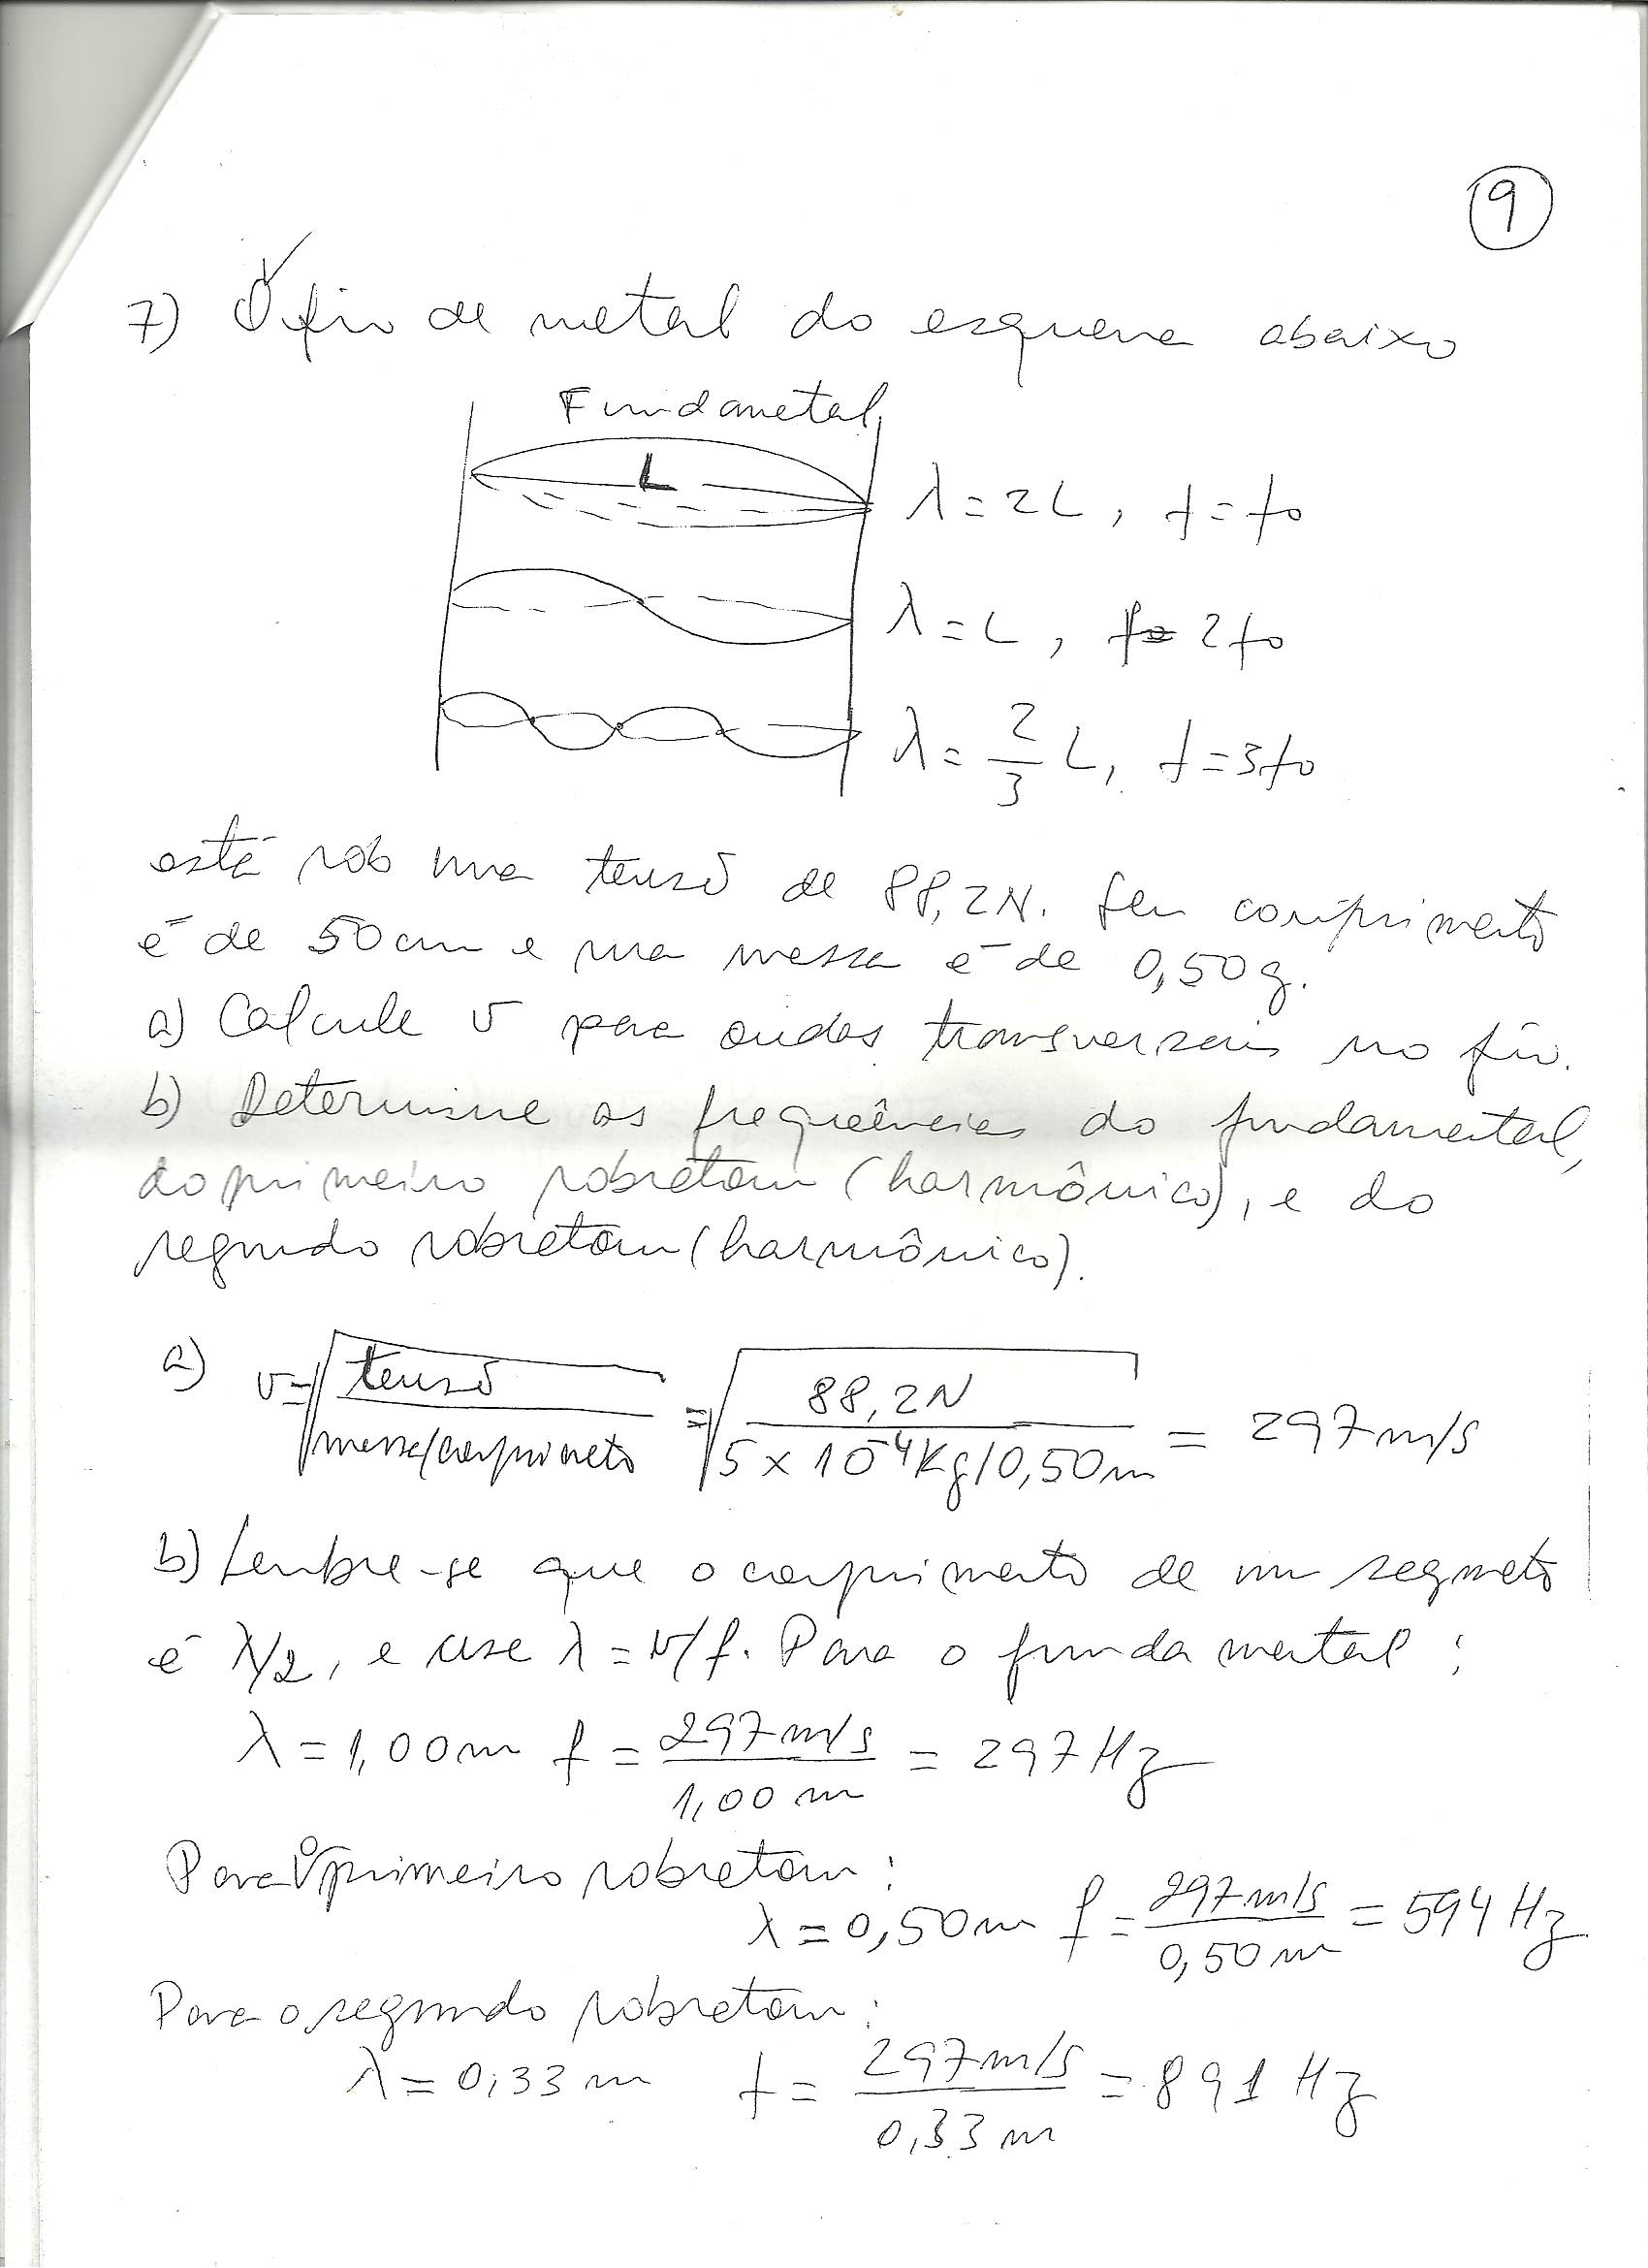 9
7) O fio de metal do esquema abaixo
Fundametal
L
λ=2L, f=f0
λ=L, f=2f0
λ=2/3 L, f=3f0
está sob uma tensõ de 88,2N. Seu comprimento
é de 50cm e sua massa é de 0,50g.
a) Calcule v para ondas transversais no fio.
b) Determine as freqüências do fundamental,
do primeiro sobretom (harmônico), e do
segundo sobretom (harmônico).
a) v=√(tensõ/massa/comprimeto) = √(88,2N/5×10⁻⁴Kg/0,50m) = 297m/s
b) Lembre-se que o comprimento de um segmeto
é λ/2, e use λ=v/f. Para o fundamental:
λ=1,00m f=297m/s/1,00m = 297Hz
Para o primeiro sobretom:
λ=0,50m f=297m/s/0,50m = 594Hz
Para o segundo sobretom:
λ=0,33m f=297m/s/0,33m = 891Hz